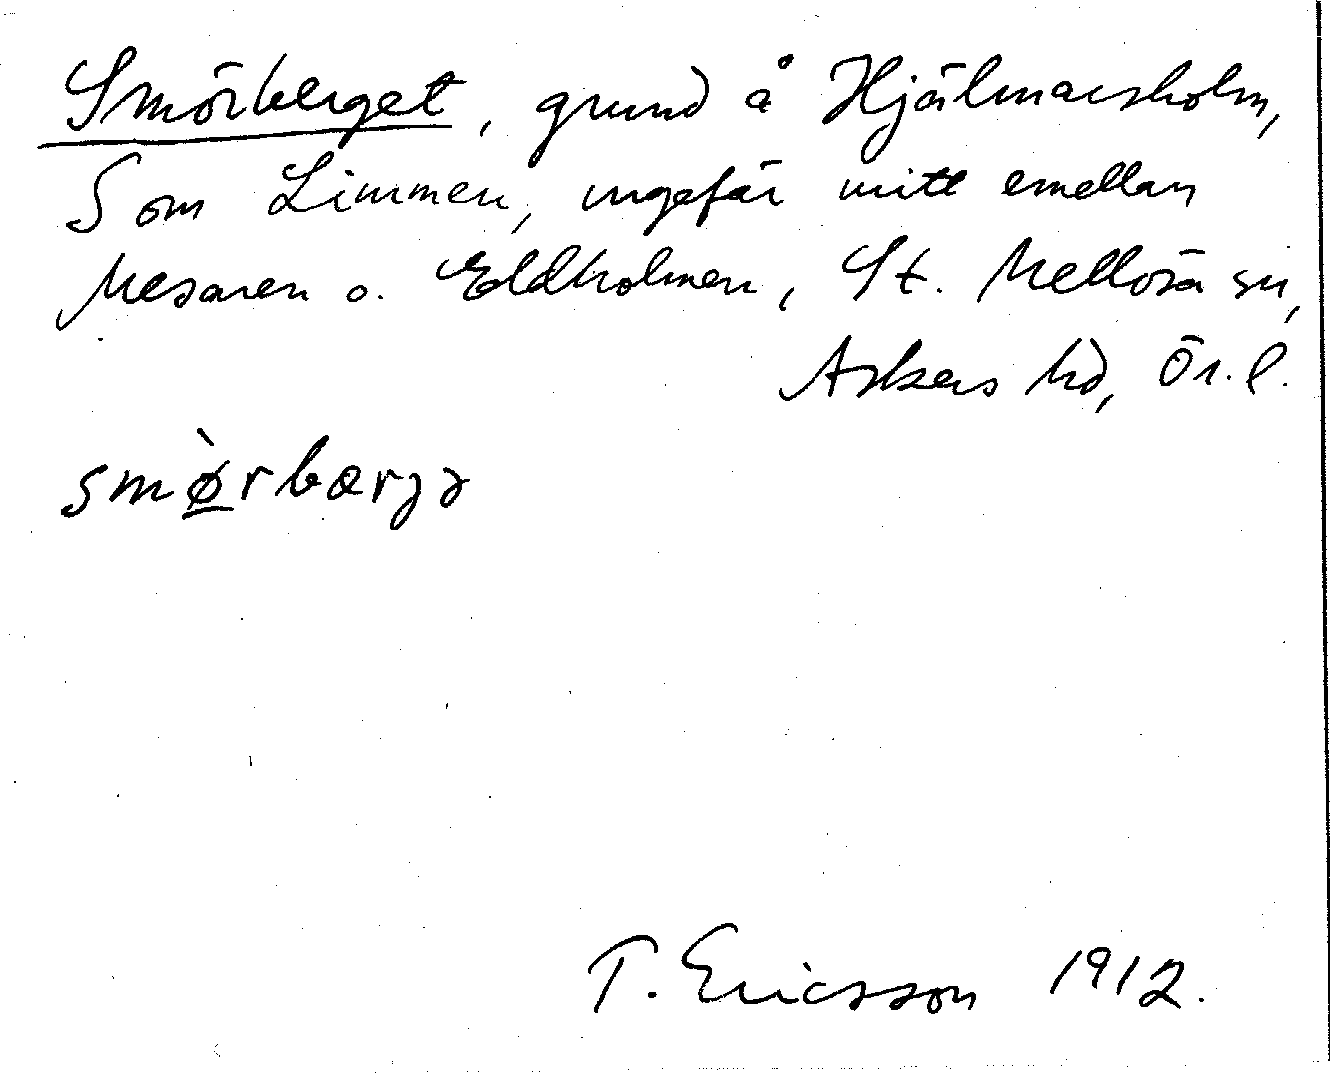 Smörberget, grund å Hjälmarsholm,
S om Limmen, ungefär mitt emellan
Mesaren o. Eldholmen, St. Mellösa sn,
Askers hd, Ör. l.
smø̲̀rbærjə
T. Ericsson 1912.